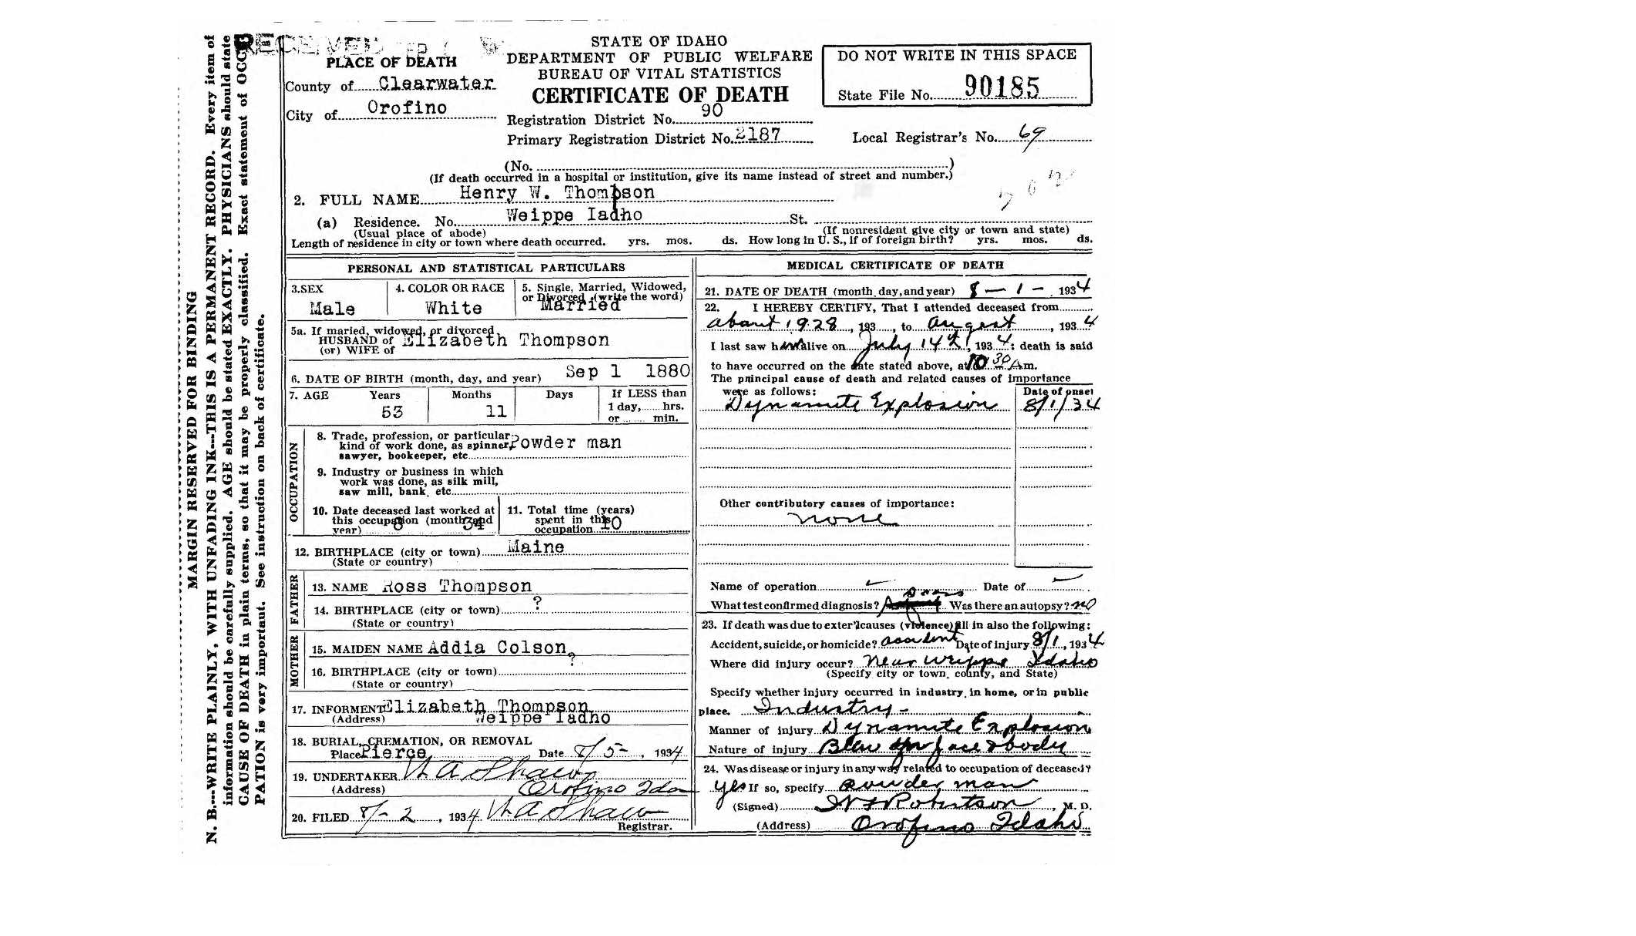 MARGIN RESERVED FOR BINDING
N. B.---WRITE PLAINLY, WITH UNFADING INK---THIS IS A PERMANENT RECORD. Every item of
information should be carefully supplied. AGE should be stated EXACTLY. PHYSICIANS should state
CAUSE OF DEATH in plain terms, so that it may be properly classified. Exact statement of OCCU
PATION is very important. See instruction on back of certificate.
RECEIVED
PLACE OF DEATH
County of Clearwater
City of Orofino
STATE OF IDAHO
DEPARTMENT OF PUBLIC WELFARE
BUREAU OF VITAL STATISTICS
CERTIFICATE OF DEATH
Registration District No. 90
Primary Registration District No. 2187
DO NOT WRITE IN THIS SPACE
State File No. 90185
Local Registrar's No. 69
(No. )
(If death occurred in a hospital or institution, give its name instead of street and number.)
2. FULL NAME Henry W. Thompson
(a) Residence. No. Weippe Iadho St.
(Usual place of abode) (If nonresident give city or town and state)
Length of residence in city or town where death occurred. yrs. mos. ds. How long in U. S., if of foreign birth? yrs. mos. ds.
PERSONAL AND STATISTICAL PARTICULARS
3.SEX Male
4. COLOR OR RACE White
5. Single, Married, Widowed,
or Divorced (write the word)
Married
5a. If maried, widowed, or divorced
HUSBAND of Elizabeth Thompson
(or) WIFE of
6. DATE OF BIRTH (month, day, and year) Sep 1 1880
7. AGE Years Months Days If LESS than
53 11 1 day, hrs.
or min.
OCCUPATION
8. Trade, profession, or particular
kind of work done, as spinner, Powder man
sawyer, bookeeper, etc.
9. Industry or business in which
work was done, as silk mill,
saw mill, bank, etc.
10. Date deceased last worked at
this occupation (month and
year) 8 34
11. Total time (years)
spent in this
occupation 10
12. BIRTHPLACE (city or town) Maine
(State or country)
FATHER
13. NAME Ross Thompson
14. BIRTHPLACE (city or town) ?
(State or country)
MOTHER
15. MAIDEN NAME Addia Colson
16. BIRTHPLACE (city or town) ?
(State or country)
17. INFORMENT Elizabeth Thompson
(Address) Weippe Iadho
18. BURIAL, CREMATION, OR REMOVAL
Place Pierce Date 8/5- , 1934
19. UNDERTAKER A Shaw
(Address) Orofino Ida
20. FILED 8/- 2 , 1934 A Shaw
Registrar.
MEDICAL CERTIFICATE OF DEATH
21. DATE OF DEATH (month, day, and year) 8 - 1 - , 1934
22. I HEREBY CERTIFY, That I attended deceased from
about 1928 , 193 , to August , 193 4
I last saw him alive on July 14th, 193 4: death is said
to have occurred on the date stated above, at 10 30 A m.
The principal cause of death and related causes of importance
were as follows: Date of onset
Dynamite Explosion 8/1/34
Other contributory causes of importance:
none
Name of operation Date of
What test confirmed diagnosis? Was there an autopsy? no
23. If death was due to exter'l causes (violence) fill in also the following:
Accident, suicide, or homicide? accident Date of injury 8/1, 193 4
Where did injury occur? near Weippe Idaho
(Specify city or town, county, and State)
Specify whether injury occurred in industry, in home, or in public
place. Industry -
Manner of injury Dynamite Explosion
Nature of injury Blew off face & body
24. Was disease or injury in any way related to occupation of deceased?
yes If so, specify powder man
(Signed) Robertson , M. D.
(Address) Orofino Idaho